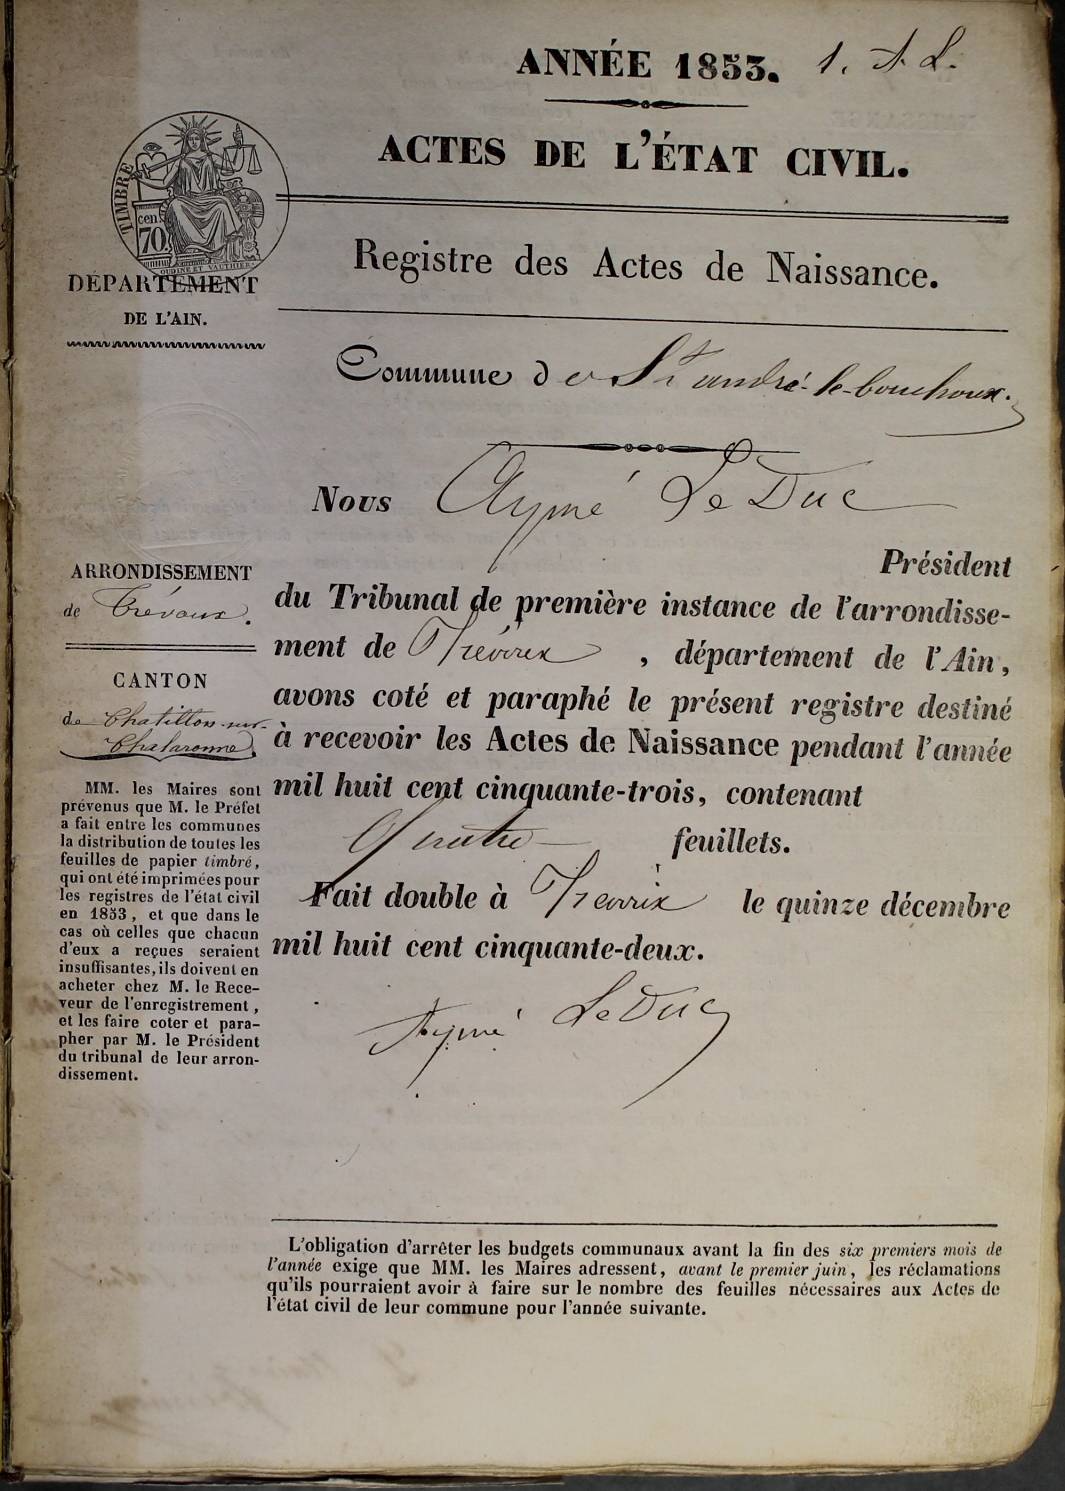 ANNÉE 1853. 1. A. L.
ACTES DE L'ÉTAT CIVIL.
TIMBRE
cen.
70.
OUDINE ET VAUTHIER
DÉPARTEMENT
DE L'AIN.
Registre des Actes de Naissance.
Commune de St andré-le-bouchoux.
Nous Aymé Le Duc
Président
du Tribunal de première instance de l'arrondisse-
ment de Trévoux, département de l'Ain,
avons coté et paraphé le présent registre destiné
à recevoir les Actes de Naissance pendant l'année
mil huit cent cinquante-trois, contenant
feuillets.
Fait double à Trevoux le quinze décembre
mil huit cent cinquante-deux.
Aymé Le Duc
ARRONDISSEMENT
de Trévoux.
CANTON
de Chatillon-sur-
Chalaronne
MM. les Maires sont
prévenus que M. le Préfet
a fait entre les communes
la distribution de toutes les
feuilles de papier timbré,
qui ont été imprimées pour
les registres de l'état civil
en 1853, et que dans le
cas où celles que chacun
d'eux a reçues seraient
insuffisantes, ils doivent en
acheter chez M. le Rece-
veur de l'enregistrement,
et les faire coter et para-
pher par M. le Président
du tribunal de leur arron-
dissement.
L'obligation d'arrêter les budgets communaux avant la fin des six premiers mois de
l'année exige que MM. les Maires adressent, avant le premier juin, les réclamations
qu'ils pourraient avoir à faire sur le nombre des feuilles nécessaires aux Actes de
l'état civil de leur commune pour l'année suivante.